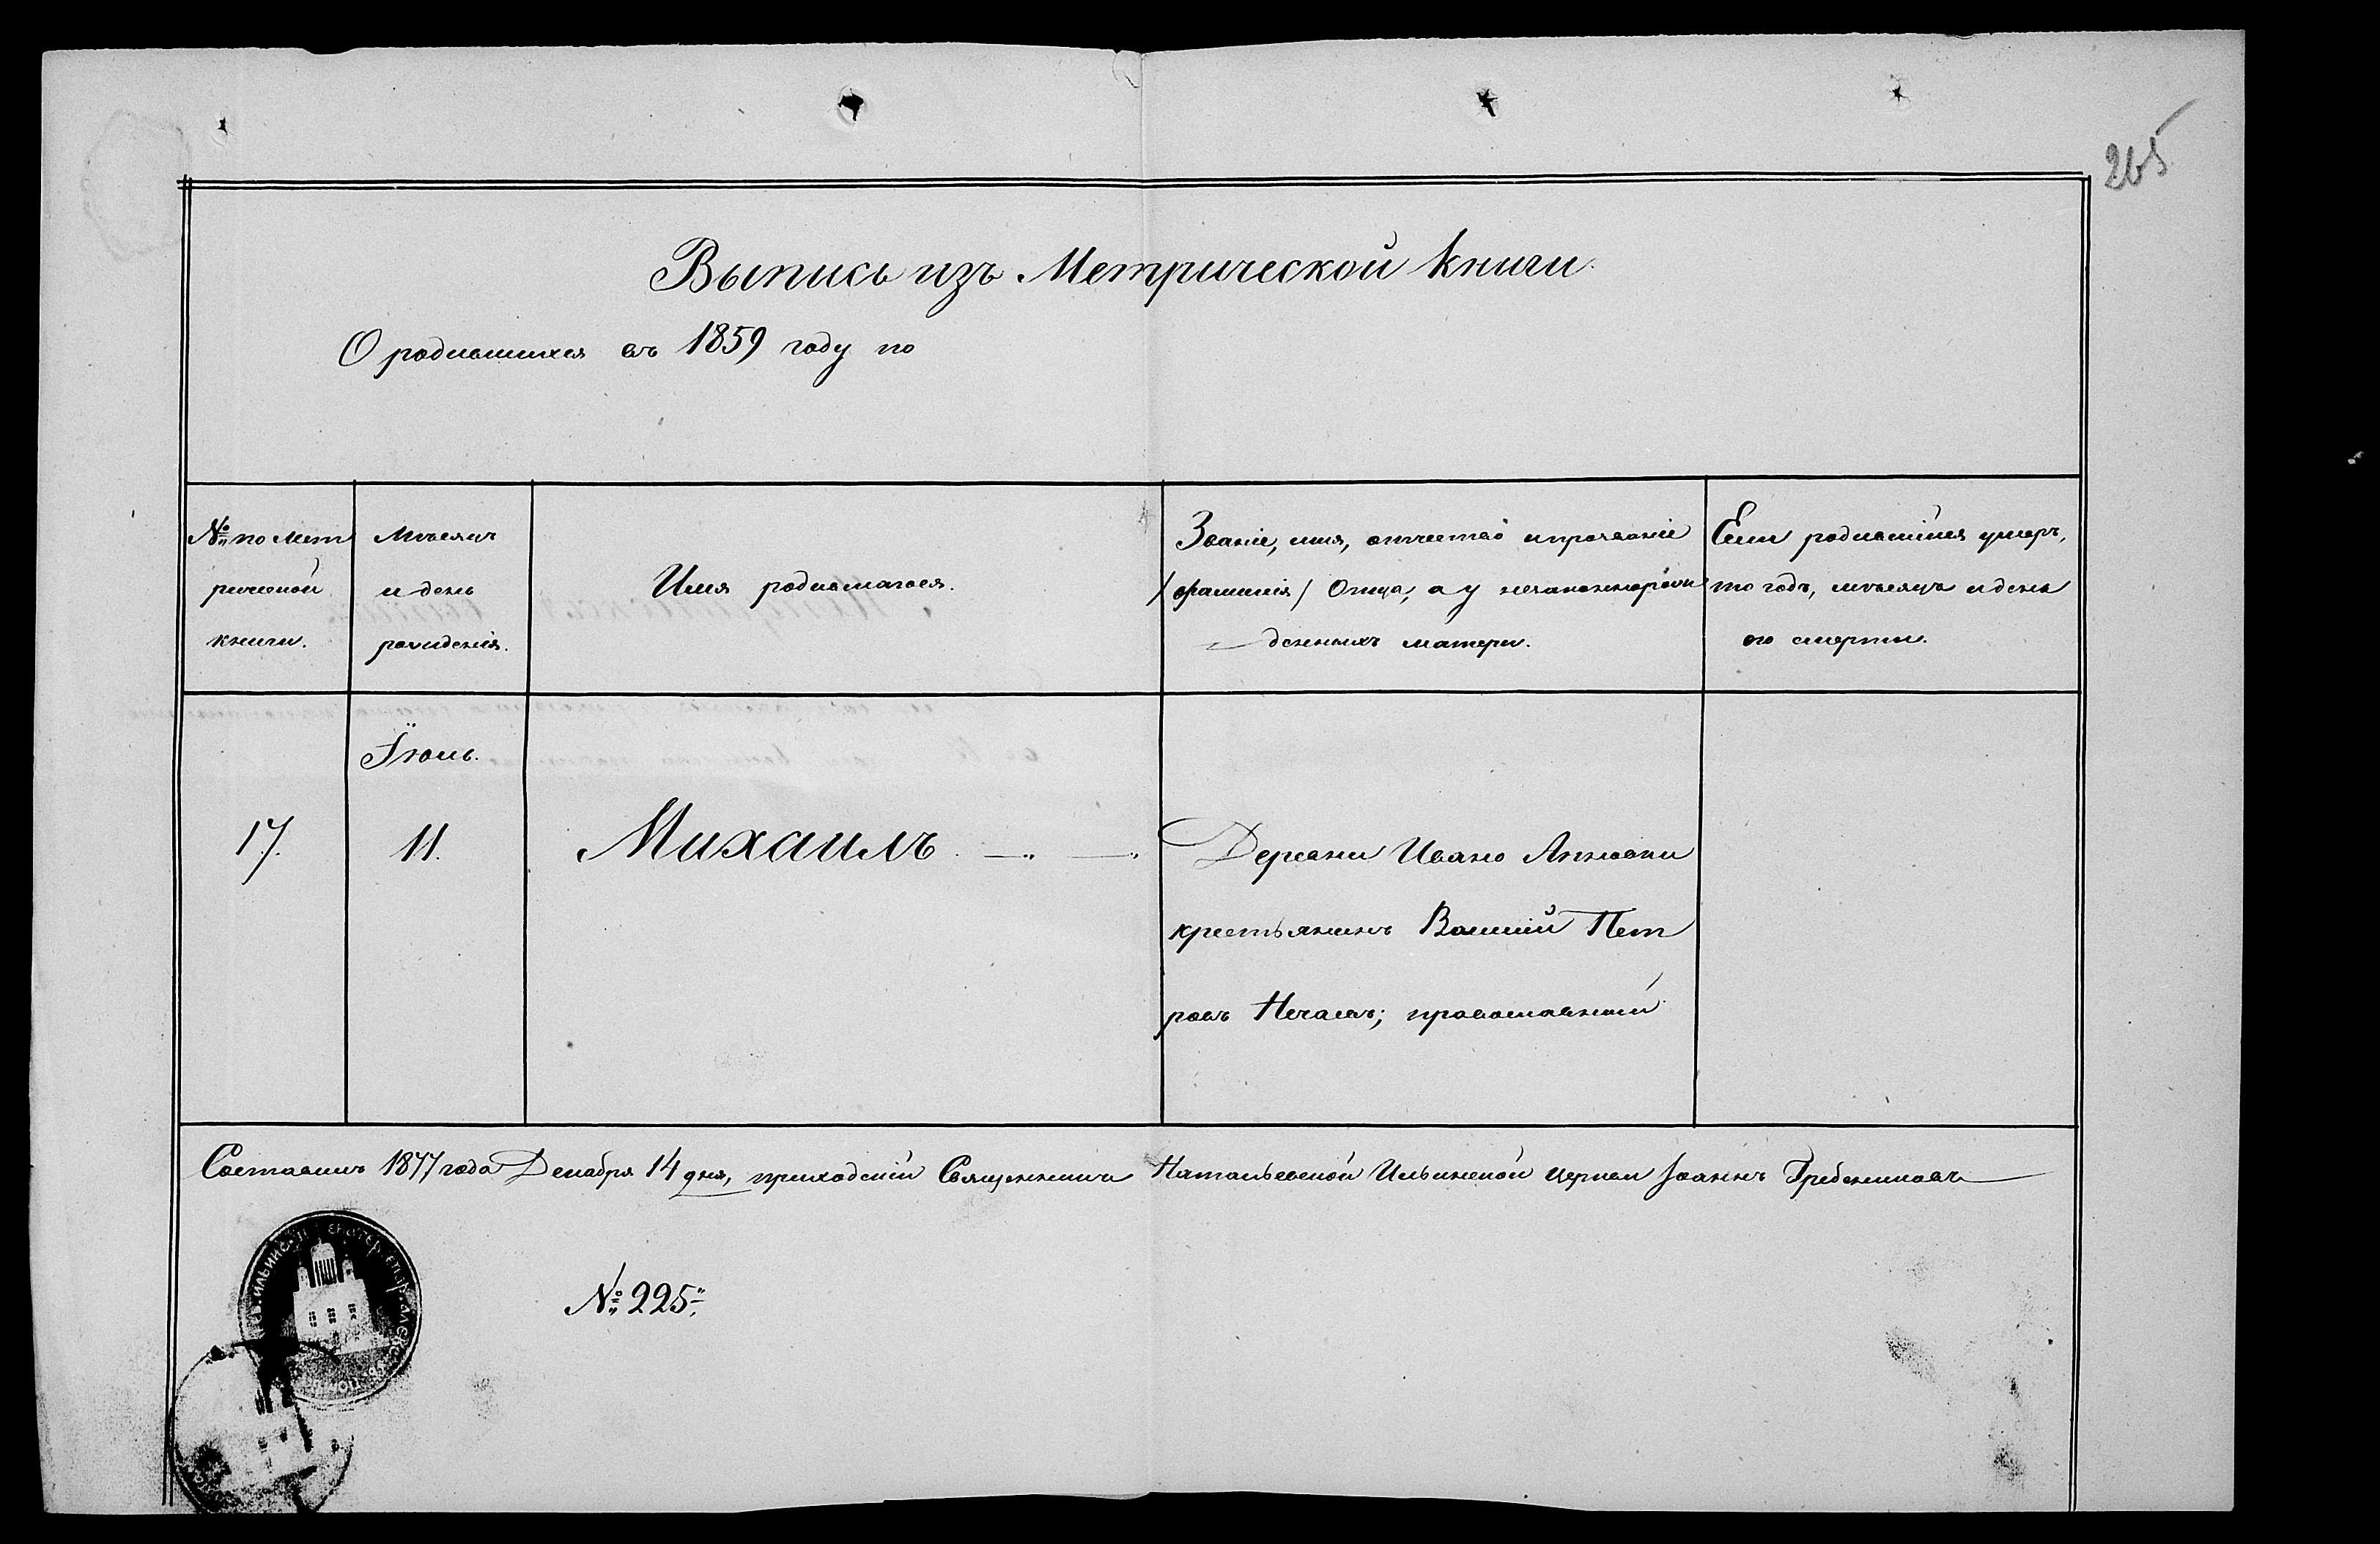 265
Выпись изъ Метрической книги.
О родившихся въ 1859 году по
№ по Мет
рической
книги.
Мѣсяцъ
и день
рожденія.
Имя родившагося.
Званіе, имя, отчество и прозваніе
/фамилія/ Отца, а у незаконнорож
денныхъ матери.
Если родившійся умеръ,
то годъ, мѣсяцъ и день
его смерти.
Їюль.
17.
11.
Михаилъ.
Деревни Ивано Анновки
крестьянинъ Василій Пет
ровъ Нечаевъ; православный
Составилъ 1877 года Декабря 14 дня, приходскій Священникъ Натальевской Ильинской церкви Іоаннъ Гребенниковъ
№ 225